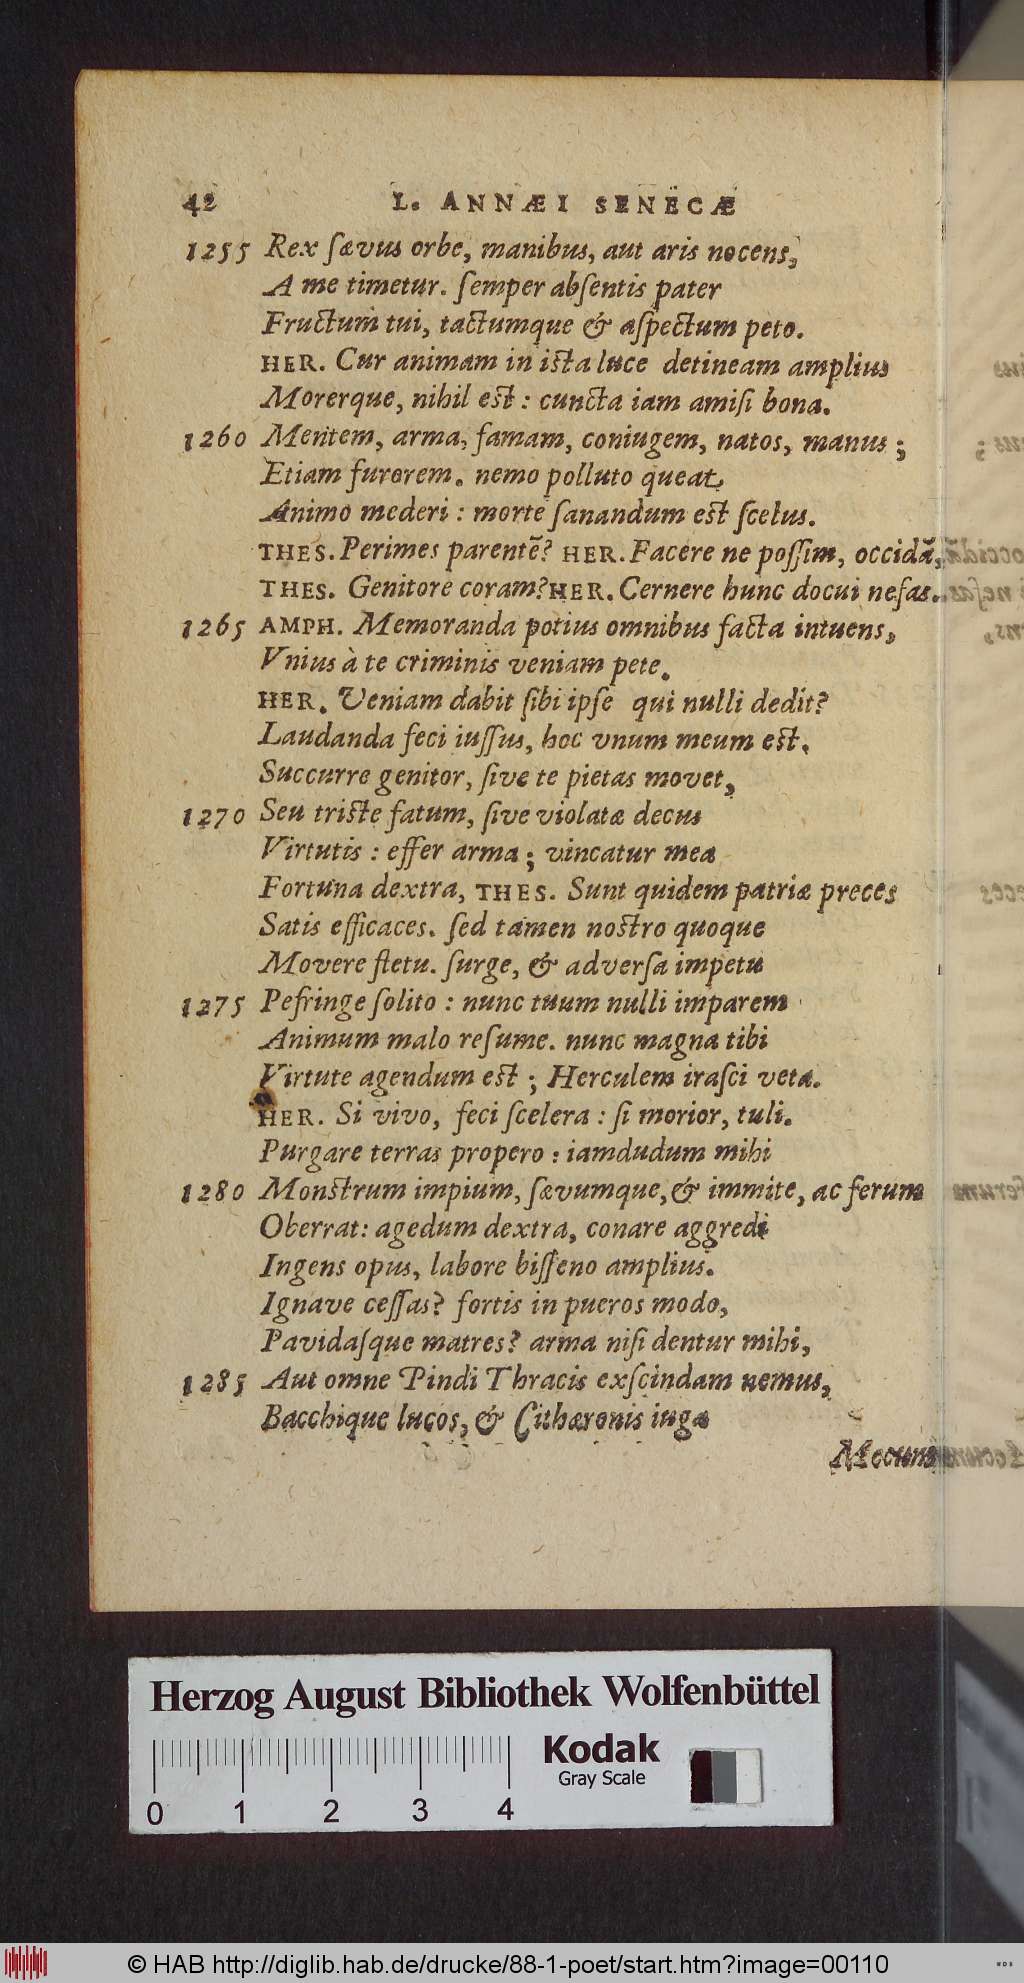 42 L. ANNÆI SENECÆ
1255 Rex ſævus orbe, manibus, aut aris nocens,
A me timetur. ſemper abſentis pater
Fructum tui, tactumque & aſpectum peto.
HER. Cur animam in iſta luce detineam amplius
Morerque, nihil eſt : cuncta iam amiſi bona.
1260 Mentem, arma, famam, coniugem, natos, manus ;
Etiam furorem. nemo polluto queat
Animo mederi : morte ſanandum eſt ſcelus.
THES. Perimes parentē? HER. Facere ne poſſim, occidā,
THES. Genitore coram? HER. Cernere hunc docui nefas.
1265 AMPH. Memoranda potius omnibus facta intuens,
Vnius à te criminis veniam pete.
HER. Veniam dabit ſibi ipſe qui nulli dedit?
Laudanda feci iuſſus, hoc vnum meum eſt.
Succurre genitor, ſive te pietas movet,
1270 Seu triſte fatum, ſive violatæ decus
Virtutis : effer arma ; vincatur mea
Fortuna dextra, THES. Sunt quidem patriæ preces
Satis efficaces. ſed tamen noſtro quoque
Movere fletu. ſurge, & adverſa impetu
1275 Pefringe ſolito : nunc tuum nulli imparem
Animum malo reſume. nunc magna tibi
Virtute agendum eſt ; Herculem iraſci veta.
HER. Si vivo, feci ſcelera : ſi morior, tuli.
Purgare terras propero : iamdudum mihi
1280 Monſtrum impium, ſævumque, & immite, ac ferum
Oberrat : agedum dextra, conare aggredi
Ingens opus, labore biſſeno amplius.
Ignave ceſſas? fortis in pueros modo,
Pavidaſque matres? arma niſi dentur mihi,
1285 Aut omne Pindi Thracis exſcindam nemus,
Bacchique lucos, & Cithæronis iuga
Mecum
Herzog August Bibliothek Wolfenbüttel
Kodak
Gray Scale
0 1 2 3 4
© HAB http://diglib.hab.de/drucke/88-1-poet/start.htm?image=00110